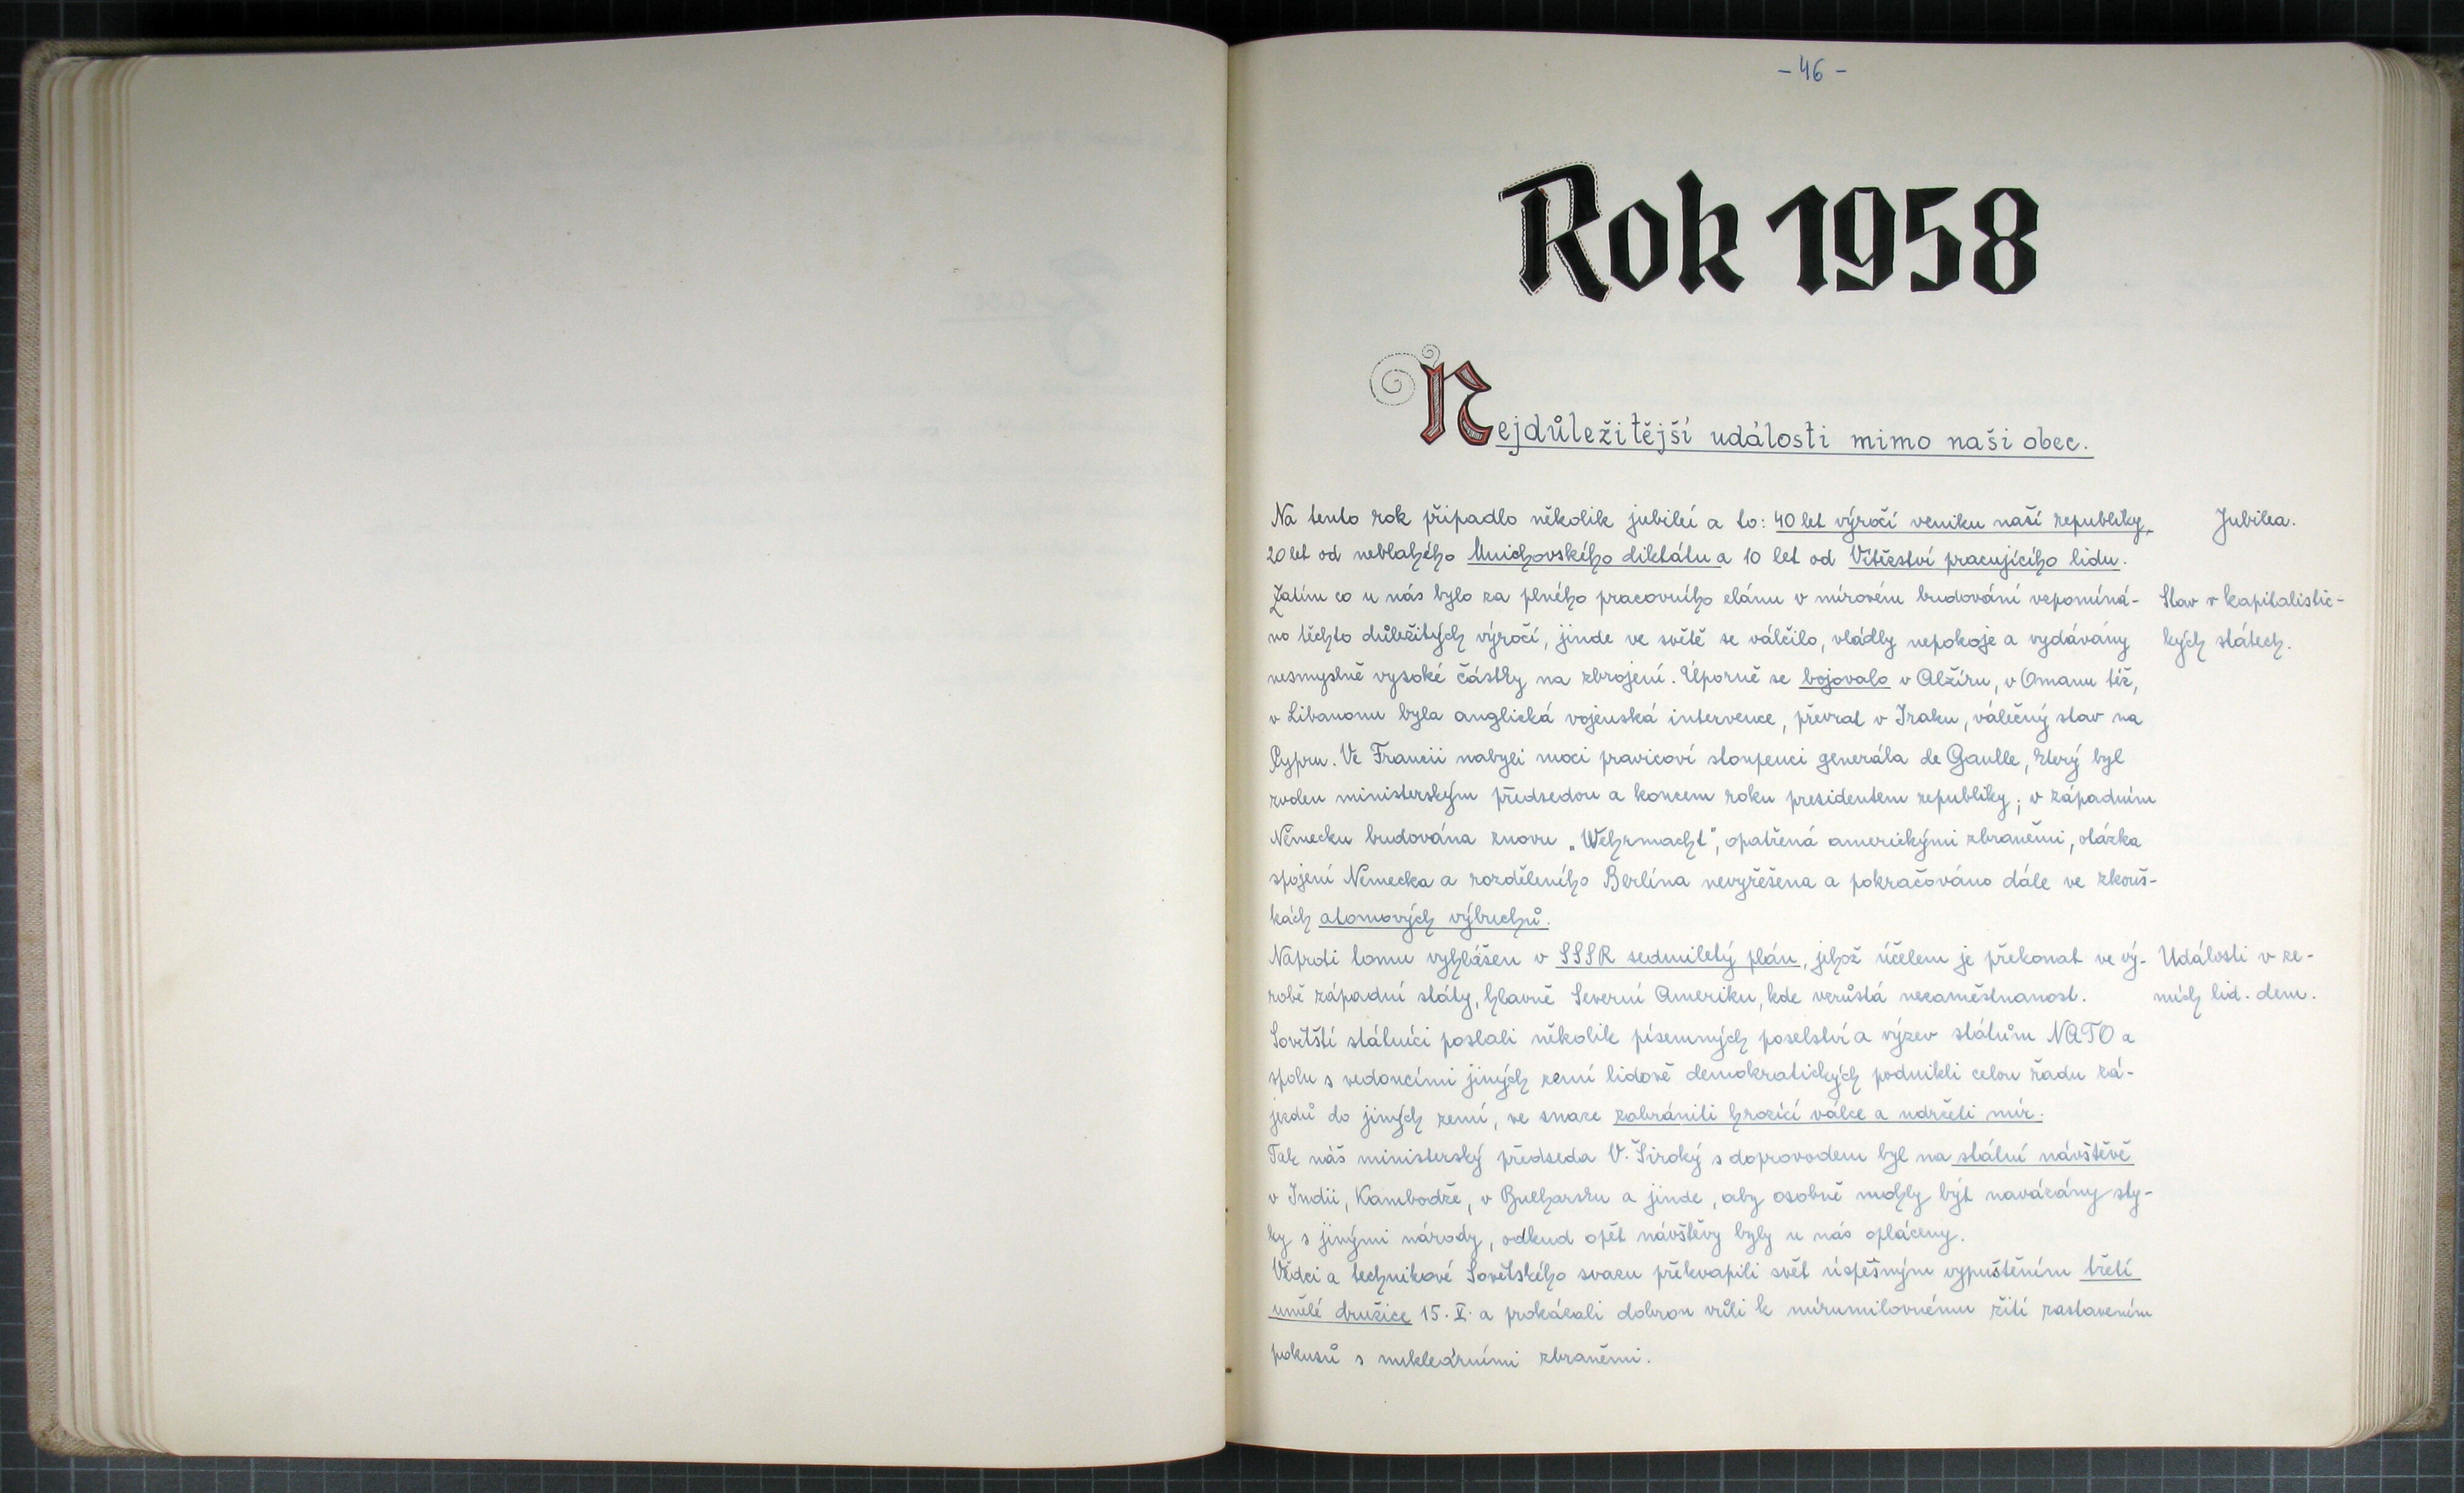 - 46 -
Rok 1958
Nejdůležitější události mimo naši obec.
Na tento rok připadlo několik jubileí a to: 40 let výročí vzniku naší republiky, Jubilea.
20 let od neblahého Mnichovského diktátu a 10 let od Vítězství pracujícího lidu.
Zatím co u nás bylo za plného pracovního elánu v mírovém budování vzpomíná- Stav v kapitalistic-
no těchto důležitých výročí, jinde ve světě se válčilo, vládly nepokoje a vydávány kých státech.
nesmyslně vysoké částky na zbrojení. Úporně se bojovalo v Alžíru, v Omanu též,
v Libanonu byla anglická vojenská intervence, převrat v Iraku, válečný stav na
Cypru. Ve Francii nabyli moci pravicoví stoupenci generála de Gaulle, který byl
zvolen ministerským předsedou a koncem roku presidentem republiky; v západním
Německu budována znovu „Wehrmacht", opatřená americkými zbraněmi, otázka
spojení Německa a rozděleného Berlína nevyřešena a pokračováno dále ve zkouš-
kách atomových výbuchů.
Naproti tomu vyhlášen v SSSR sedmiletý plán, jehož účelem je překonat ve vý- Události v ze-
robě západní státy, hlavně Severní Ameriku, kde vzrůstá nezaměstnanost. mích lid. dem.
Sovětští státníci poslali několik písemných poselství a výzev státům NATO a
spolu s vedoucími jiných zemí lidově demokratických podnikli celou řadu zá-
jezdů do jiných zemí, ve snaze zabrániti hrozící válce a udržeti mír.
Tak náš ministerský předseda V. Široký s doprovodem byl na státní návštěvě
v Indii, Kambodže, v Bulharsku a jinde, aby osobně mohly být navázány sty-
ky s jinými národy, odkud opět návštěvy byly u nás opláceny.
Vědci a technikové Sovětského svazu překvapili svět úspěšným vypuštěním třetí
umělé družice 15. V. a prokázali dobrou vůli k mírumilovnému žití zastavením
pokusů s nukleárními zbraněmi.